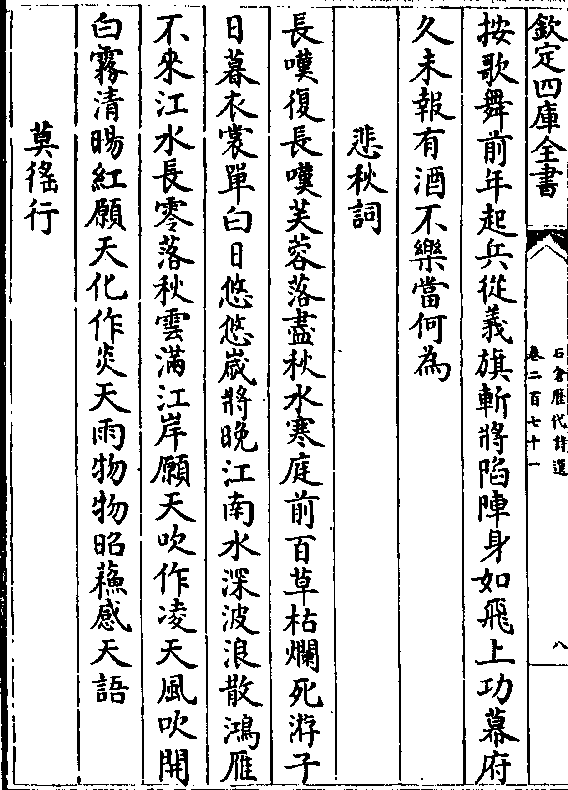 欽定四庫全書
石倉歷代詩選
卷二百七十一
八
按歌舞前年起兵從義旗斬將陷陣身如飛上功幕府
久未報有酒不樂當何為
悲秋詞
長嘆復長嘆芙蓉落盡秋水寒庭前百草枯爛死游子
日暮衣裳單白日悠悠歲將晚江南水深波浪散鴻雁
不來江水長零落秋雲滿江岸願天吹作凌天風吹開
白霧清暘紅願天化作炎天雨物物昭蘓感天語
莫徭行